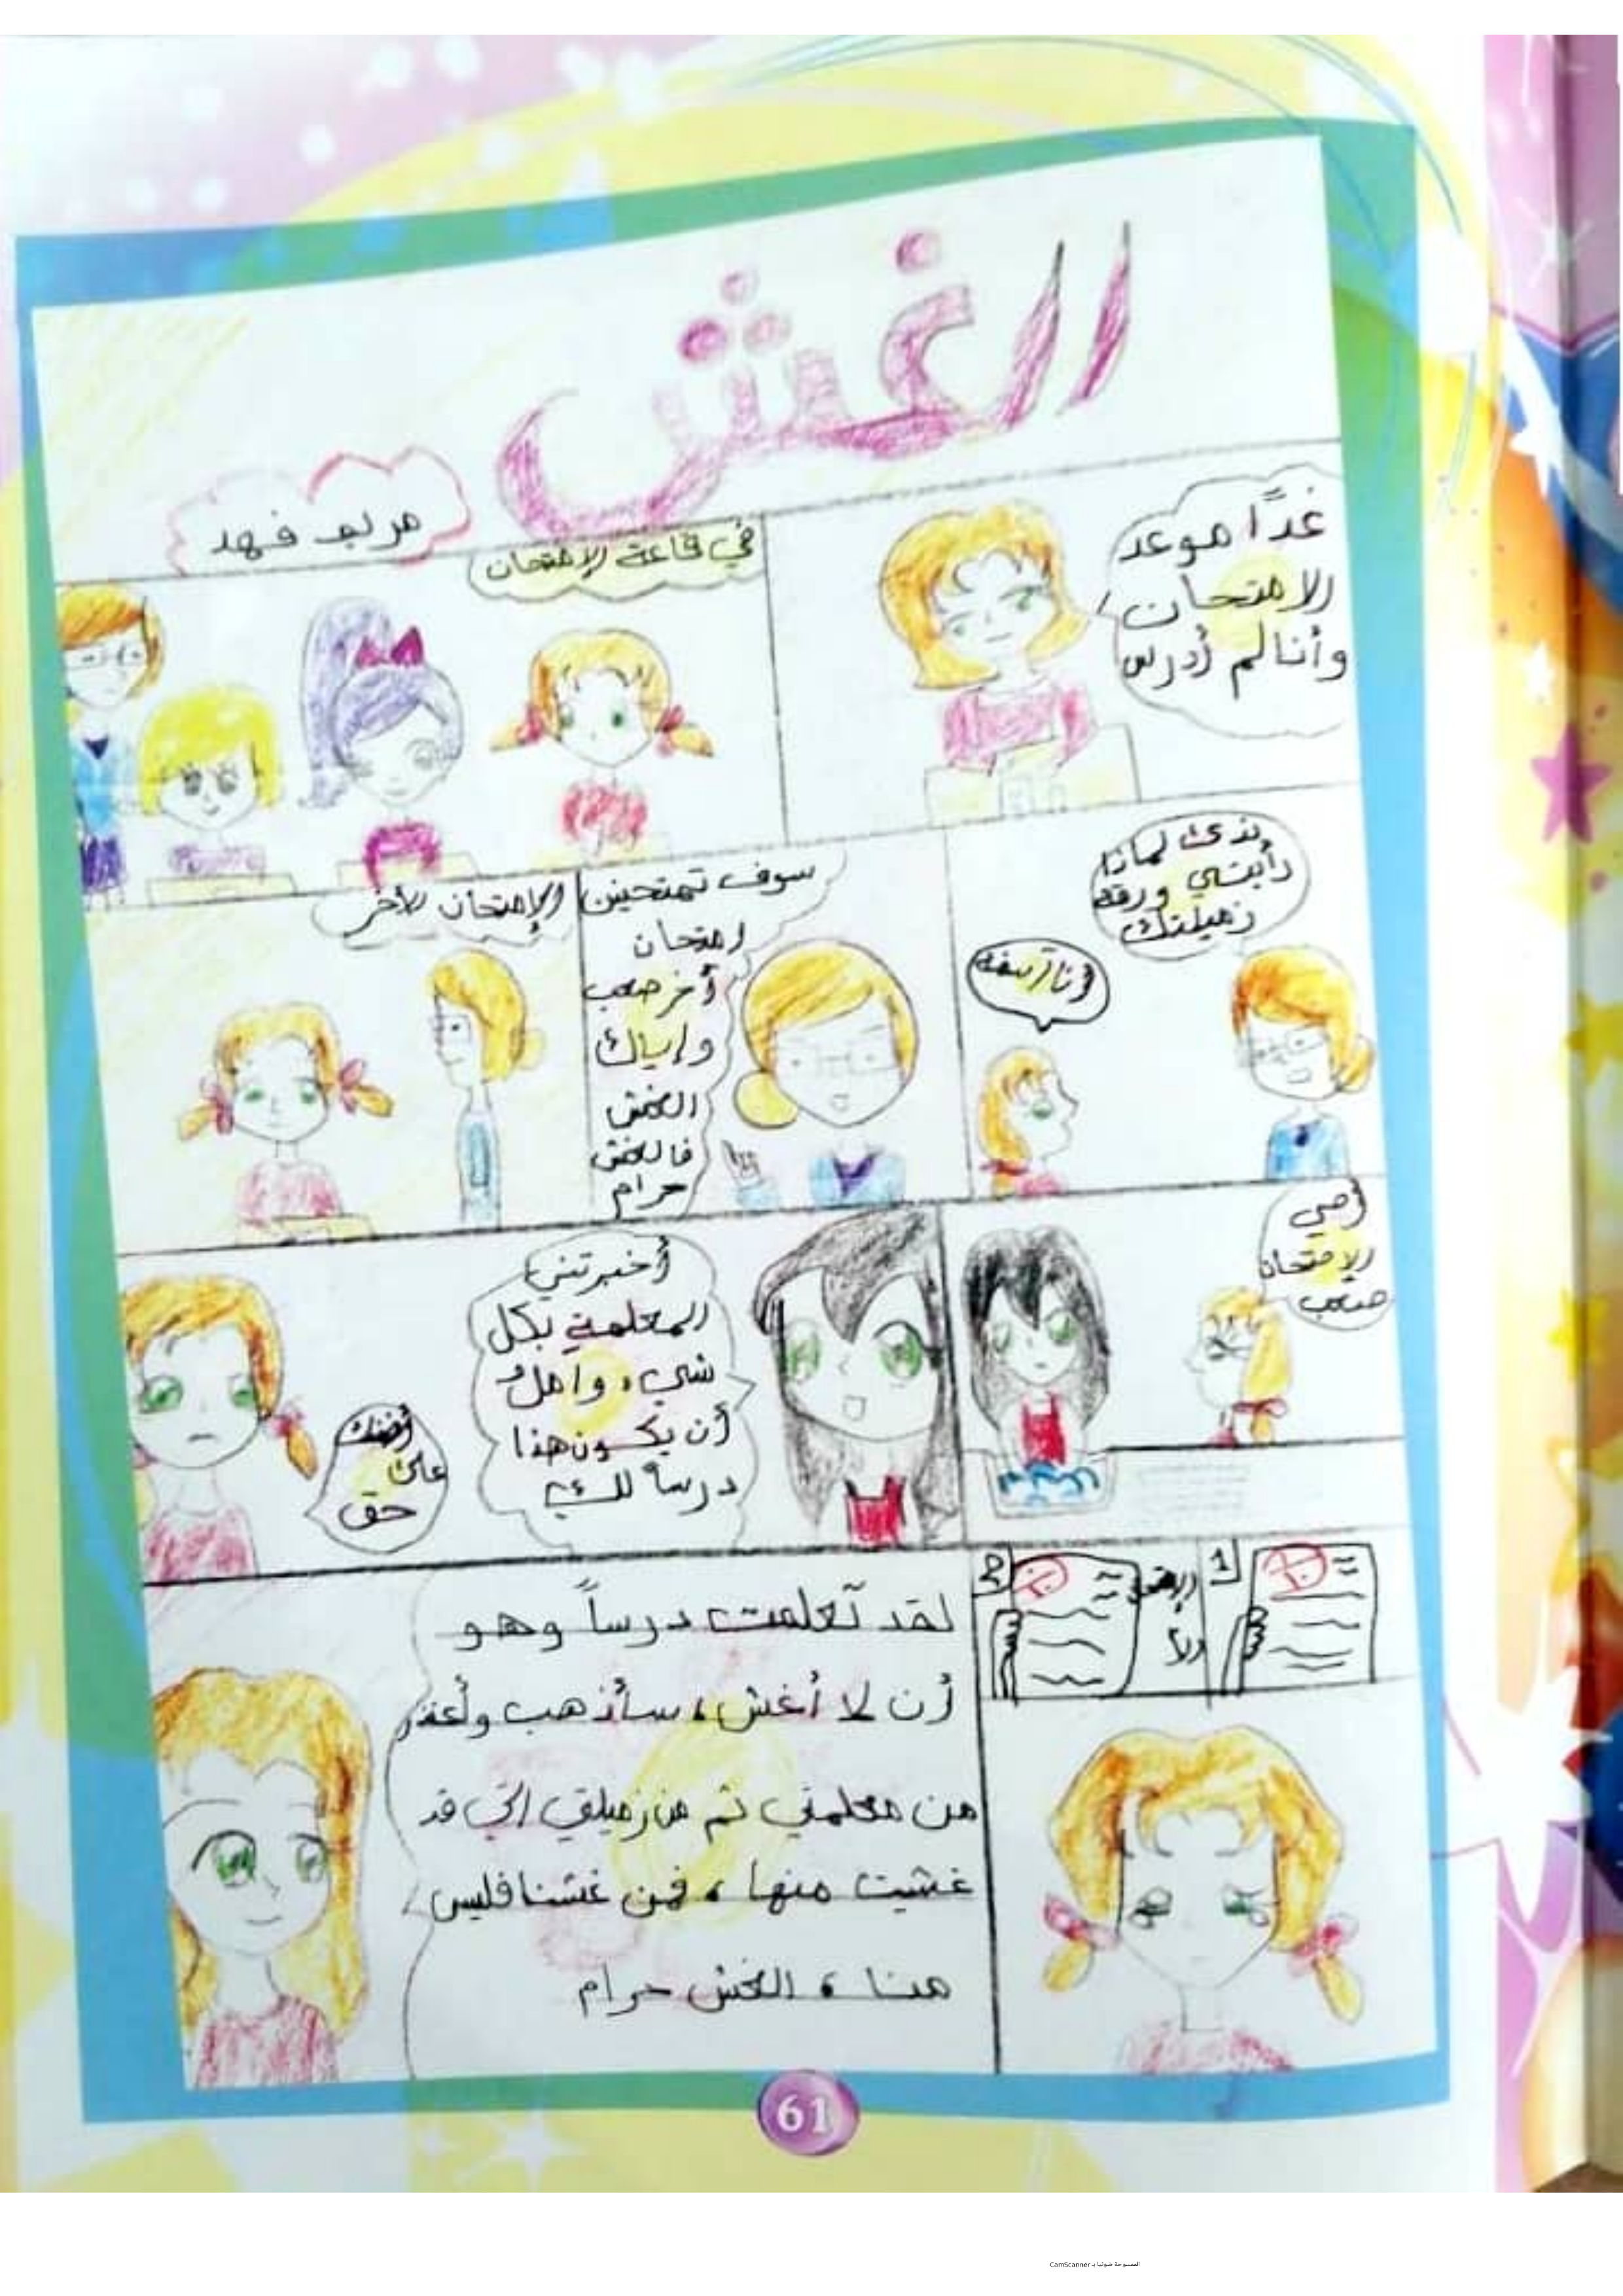 الغش
مريم فهد
غدًا موعد
الامتحان
وأنا لم أدرس
في قاعة الإمتحان
لماذا
رأيتي ورقة
زميلتك
أنا آسفة
سوف تمتحنين
امتحان
أخر صعب
وإياك
الغش
فالغش
حرام
الإمتحان الأخر
أمي
الإمتحان
صعب
أخبرتني
المعلمة بكل
شيء وامل
أن يكون هذا
درساً لك
أضنك
على
حق
1
2
لقد تعلمت درساً وهو
أن لا أغش، سأذهب
من معلمتي ثم من زميلتي التي قد
غشيت منها، فمن غشنا فليس
منا، الغش حرام
61
الممسوحة ضوئيا بـ CamScanner